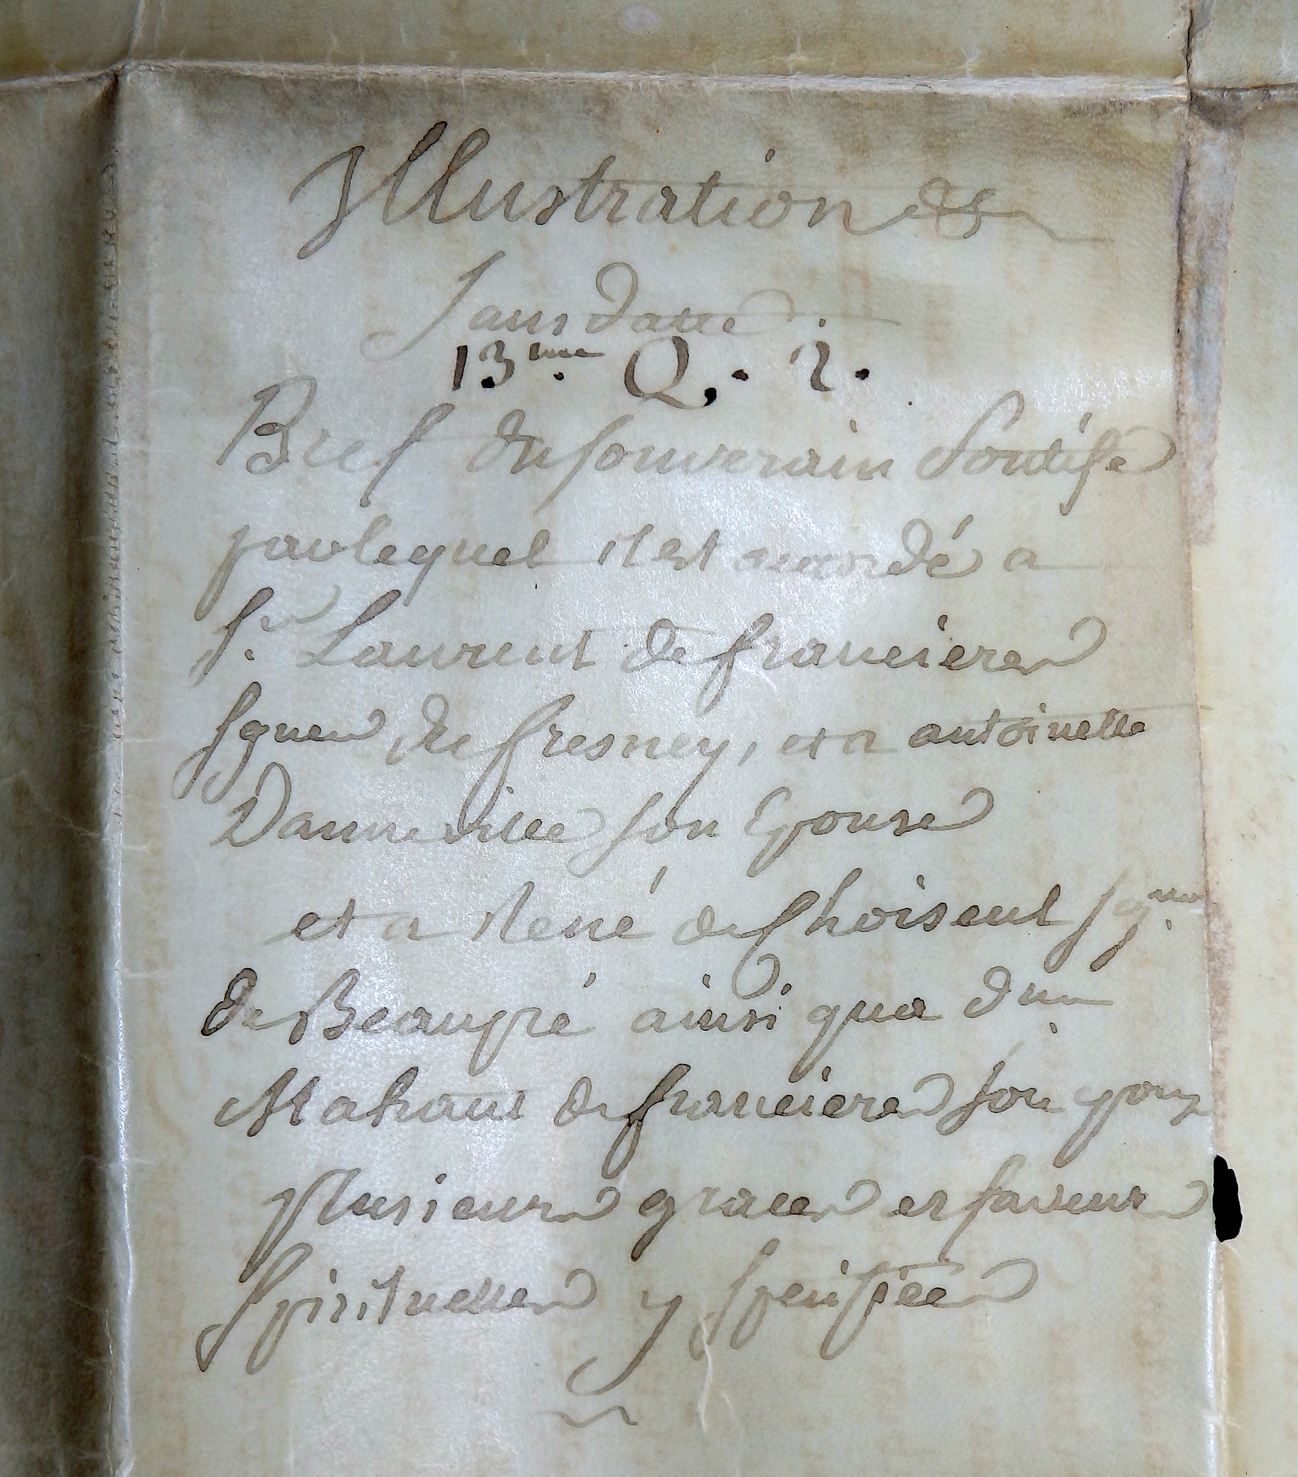 Illustration &c
Sans datte
13.me Q. 2.
Bref du souverain Pontife
par lequel il est accordé a
Sr. Laurent de francieres
sgneur de fresney, et a antoinette
Danneville son Epouse
et a René de Choiseul sgneur
de Beaupré ainsi qua Dme
Mahaut de francieres son epouze
plusieurs graces et faveurs
spirituelles y speifiées